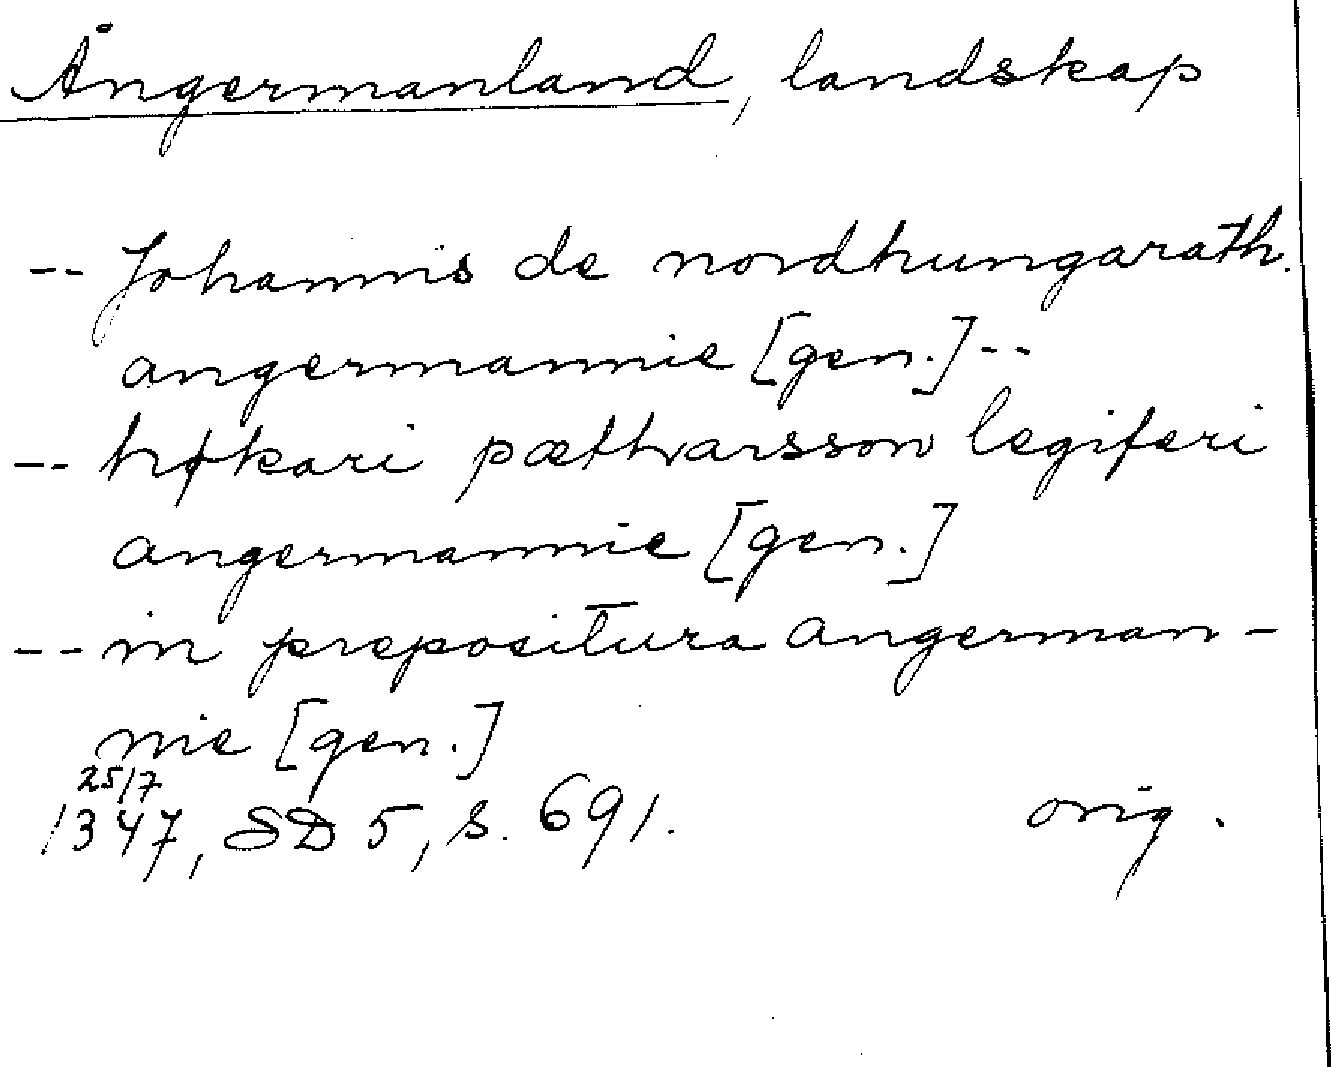 Ångermanland, landskap
-- Johannis de nordhungarath.
angermannie [gen.] --
-- høkari pæthrarsson legiferi
angermannie [gen.]
-- in prepositura angerman-
nie [gen.]
25/7
1347, SD 5, s. 691. orig.